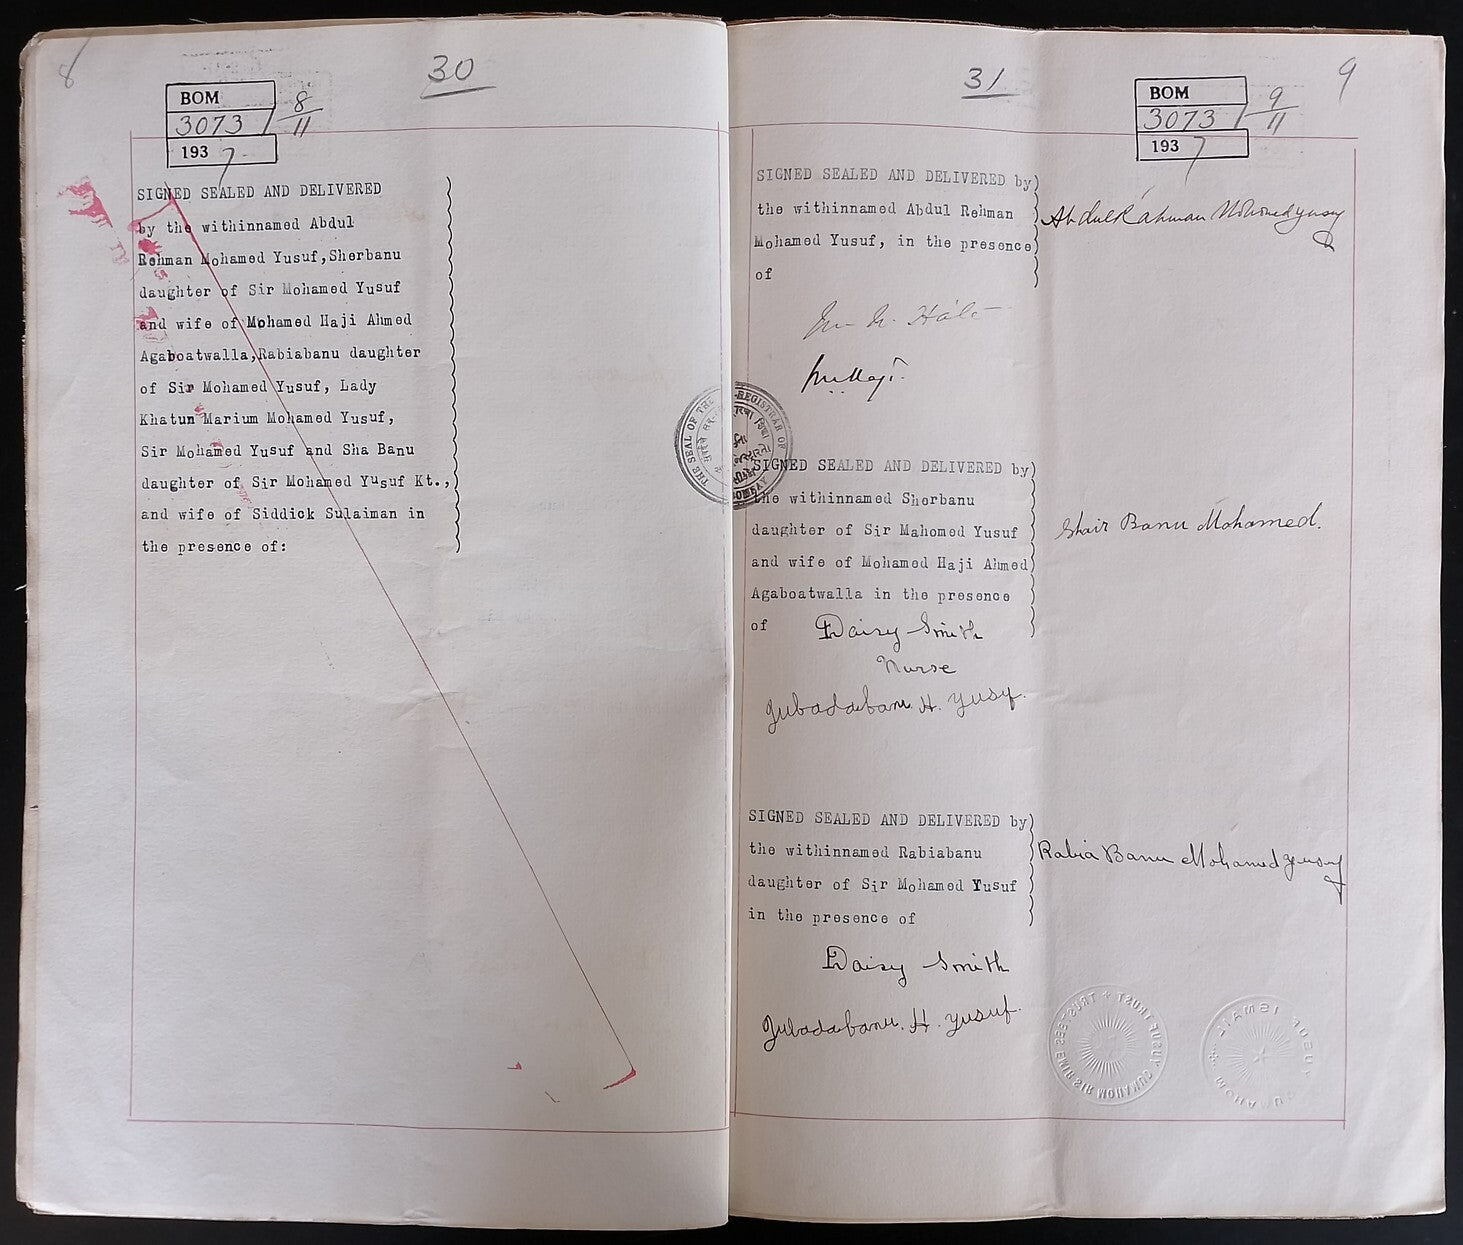 8
30
BOM
3073 / 8/11
193 7
SIGNED SEALED AND DELIVERED
by the withinnamed Abdul
Rehman Mohamed Yusuf, Sherbanu
daughter of Sir Mohamed Yusuf
and wife of Mohamed Haji Ahmed
Agaboatwalla, Rabiabanu daughter
of Sir Mohamed Yusuf, Lady
Khatun Marium Mohamed Yusuf,
Sir Mohamed Yusuf and Sha Banu
daughter of Sir Mohamed Yusuf Kt.,
and wife of Siddick Sulaiman in
the presence of:
THE SEAL OF THE
-REGISTRAR OF
BOMBAY
31
9
BOM
3073 / 9/11
193 7
SIGNED SEALED AND DELIVERED by)
the withinnamed Abdul Rehman
Mohamed Yusuf, in the presence
of
Abdul Rahman Mohomed yusuf
SIGNED SEALED AND DELIVERED by)
the withinnamed Sherbanu
daughter of Sir Mahomed Yusuf
and wife of Mohamed Haji Ahmed
Agaboatwalla in the presence
of
Shair Banu Mohamed.
Daisy Smith
Nurse
Jubadabanu. H. Yusuf.
SIGNED SEALED AND DELIVERED by)
the withinnamed Rabiabanu
daughter of Sir Mohamed Yusuf
in the presence of
Rabia Banu Mohamed yusuf
Daisy Smith
Jubadabanu. H. Yusuf.